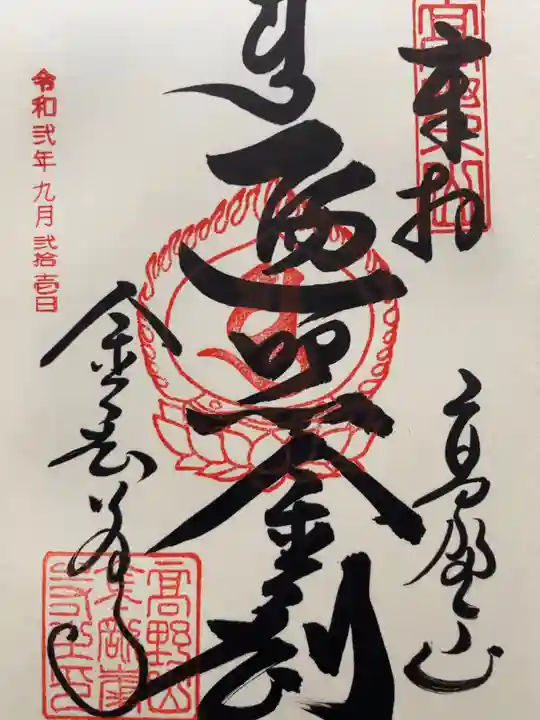 奉拝
高野山
遍照金剛
金剛峯寺
令和弐年九月弐拾壱日
高野山